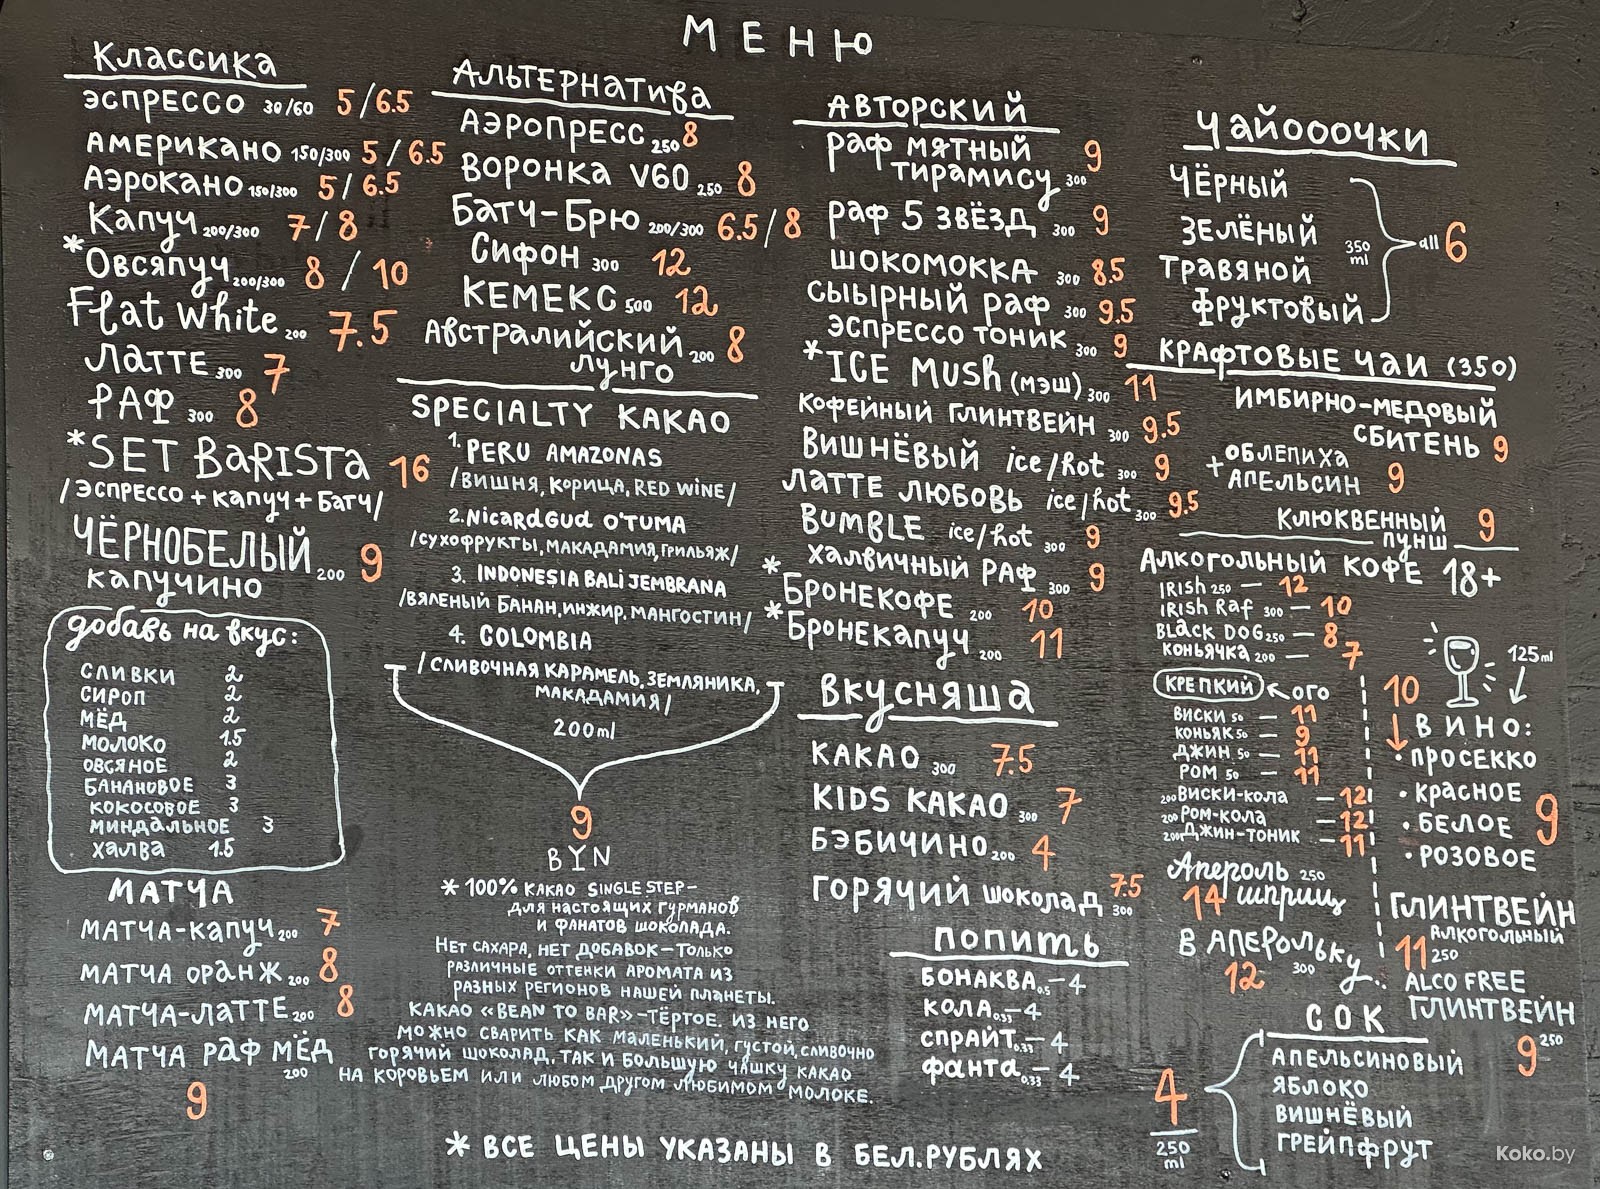 МЕНЮ
Классика
ЭСПРЕССО 30/60 5/6.5
Американо 150/300 5/6.5
Аэрокано 150/300 5/6.5
Капуч 200/300 7/8
*Овсяпуч 200/300 8/10
Flat white 200 7.5
Латте 300 7
РАФ 300 8
*SET BaRISTa 16
/ЭСПРЕССО+КАПУЧ+БАТЧ/
ЧЁРНОБЕЛЫЙ 200 9
капучино
добавь на вкус:
СЛИВКИ 2
СИРОП 2
МЁД 2
МОЛОКО 1.5
ОВСЯНОЕ 2
БАНАНОВОЕ 3
КОКОСОВОЕ 3
МИНДАЛЬНОЕ 3
ХАЛВА 1.5
МАТЧА
МАТЧА-КАПУЧ 200 7
МАТЧА ОРАНЖ 200 8
МАТЧА-ЛАТТЕ 200 8
МАТЧА РАФ МЁД
200
9
АЛЬТЕРНАТИВА
АЭРОПРЕСС 250 8
ВОРОНКА V60 250 8
БАТЧ-БРЮ 200/300 6.5/8
СИФОН 300 12
КЕМЕКС 500 12
Австралийский 200 8
лунго
SPECIALTY КАКАО
1. PERU AMAZONAS
/ВИШНЯ, КОРИЦА, RED WINE/
2. NicaRdGud O'TUMA
/СУХОФРУКТЫ, МАКАДАМИЯ, ГРИЛЬЯЖ/
3. INDONESIA BALI JEMBRANA
/ВЯЛЕНЫЙ БАНАН, ИНЖИР, МАНГОСТИН/
4. COLOMBIA
/СЛИВОЧНАЯ КАРАМЕЛЬ, ЗЕМЛЯНИКА,
МАКАДАМИЯ/
200ml
9
BYN
* 100% КАКАО SINGLE STEP-
ДЛЯ НАСТОЯЩИХ ГУРМАНОВ
И ФАНАТОВ ШОКОЛАДА.
НЕТ САХАРА, НЕТ ДОБАВОК-ТОЛЬКО
РАЗЛИЧНЫЕ ОТТЕНКИ АРОМАТА ИЗ
РАЗНЫХ РЕГИОНОВ НАШЕЙ ПЛАНЕТЫ.
КАКАО «BEAN TO BAR»-ТЁРТОЕ. ИЗ НЕГО
МОЖНО СВАРИТЬ КАК МАЛЕНЬКИЙ, ГУСТОЙ, СЛИВОЧНО
ГОРЯЧИЙ ШОКОЛАД, ТАК И БОЛЬШУЮ ЧАШКУ КАКАО
НА КОРОВЬЕМ ИЛИ ЛЮБОМ ДРУГОМ ЛЮБИМОМ МОЛОКЕ.
АВТОРСКИЙ
РАФ МЯТНЫЙ
ТИРАМИСУ 300 9
РАФ 5 ЗВЁЗД 300 9
ШОКОМОККА 300 8.5
СЫЫРНЫЙ РАФ 300 9.5
ЭСПРЕССО ТОНИК 300 9
*ICE MUSh (МЭШ) 300 11
КОФЕЙНЫЙ ГЛИНТВЕЙН 300 9.5
ВИШНЁВЫЙ ice/hot 300 9
ЛАТТЕ ЛЮБОВЬ ice/hot 300 9.5
BUMBLE ice/hot 300 9
ХАЛВИЧНЫЙ РАФ 300 9
*БРОНЕКОФЕ 200 10
*БРОНЕКАПУЧ 200 11
ВКУСНЯША
КАКАО 300 7.5
KIDS КАКАО 300 7
БЭБИЧИНО 200 4
ГОРЯЧИЙ ШОКОЛАД 300 7.5
ПОПИТЬ
БОНАКВА 0.5-4
КОЛА 0.33-4
СПРАЙТ 0.33-4
ФАНТА 0.33-4
ЧАЙОООЧКИ
ЧЁРНЫЙ
ЗЕЛЁНЫЙ
ТРАВЯНОЙ
ФРУКТОВЫЙ
350 ml
all 6
КРАФТОВЫЕ ЧАИ (350)
ИМБИРНО-МЕДОВЫЙ
СБИТЕНЬ 9
+ОБЛЕПИХА
АПЕЛЬСИН 9
КЛЮКВЕННЫЙ 9
ПУНШ
АЛКОГОЛЬНЫЙ КОФЕ 18+
IRish 250 — 12
IRish Raf 300 — 10
BLack DOG 250 — 8
КОНЬЯЧКА 200 — 7
КРЕПКИЙ ОГО
ВИСКИ 50 — 11
КОНЬЯК 50 — 9
ДЖИН 50 — 11
РОМ 50 — 11
200 ВИСКИ-КОЛА — 12
200 РОМ-КОЛА — 12
200 ДЖИН-ТОНИК — 11
Апероль 250
14 шприц
В АПЕРОЛЬКУ..
12 300
125ml
10
ВИНО:
• ПРОСЕККО
• КРАСНОЕ
• БЕЛОЕ 9
• РОЗОВОЕ
ГЛИНТВЕЙН
АЛКОГОЛЬНЫЙ
11 250
ALCO FREE
ГЛИНТВЕЙН
9 250
СОК
АПЕЛЬСИНОВЫЙ
ЯБЛОКО
ВИШНЁВЫЙ
ГРЕЙПФРУТ
4
250
ml
* ВСЕ ЦЕНЫ УКАЗАНЫ В БЕЛ.РУБЛЯХ
Koko.by